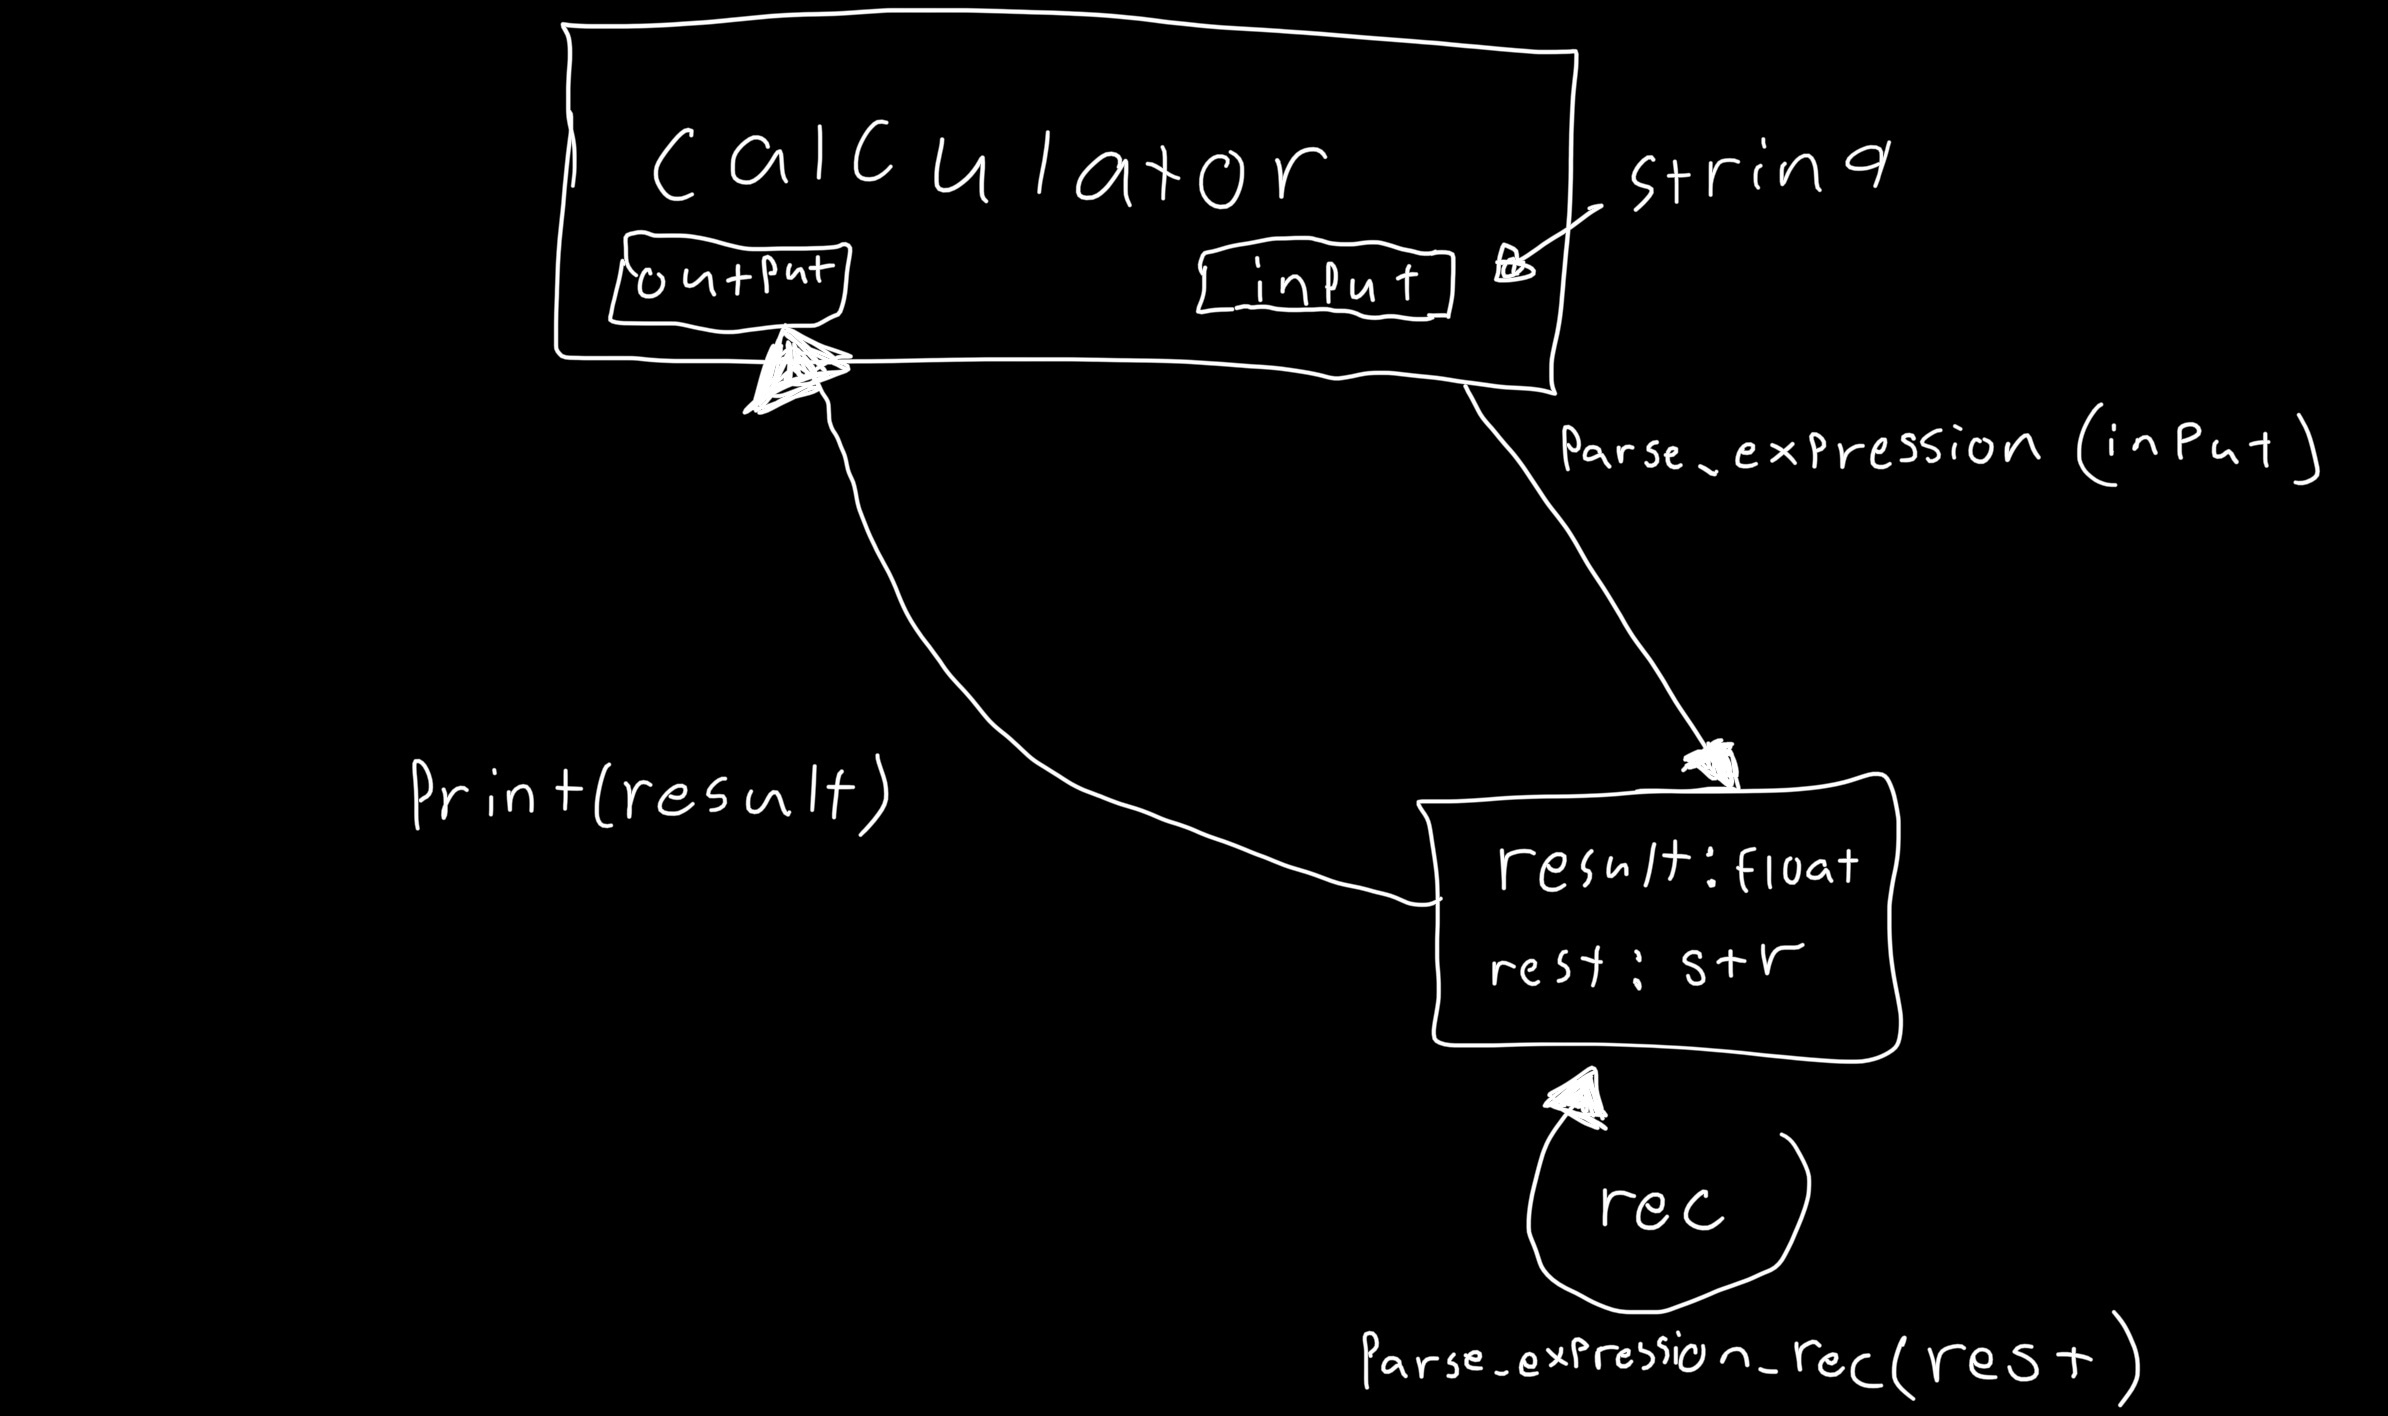 Calculator
string
output
input
Parse_expression(input)
Print(result)
result: float
rest: str
rec
Parse_expression_rec(rest)